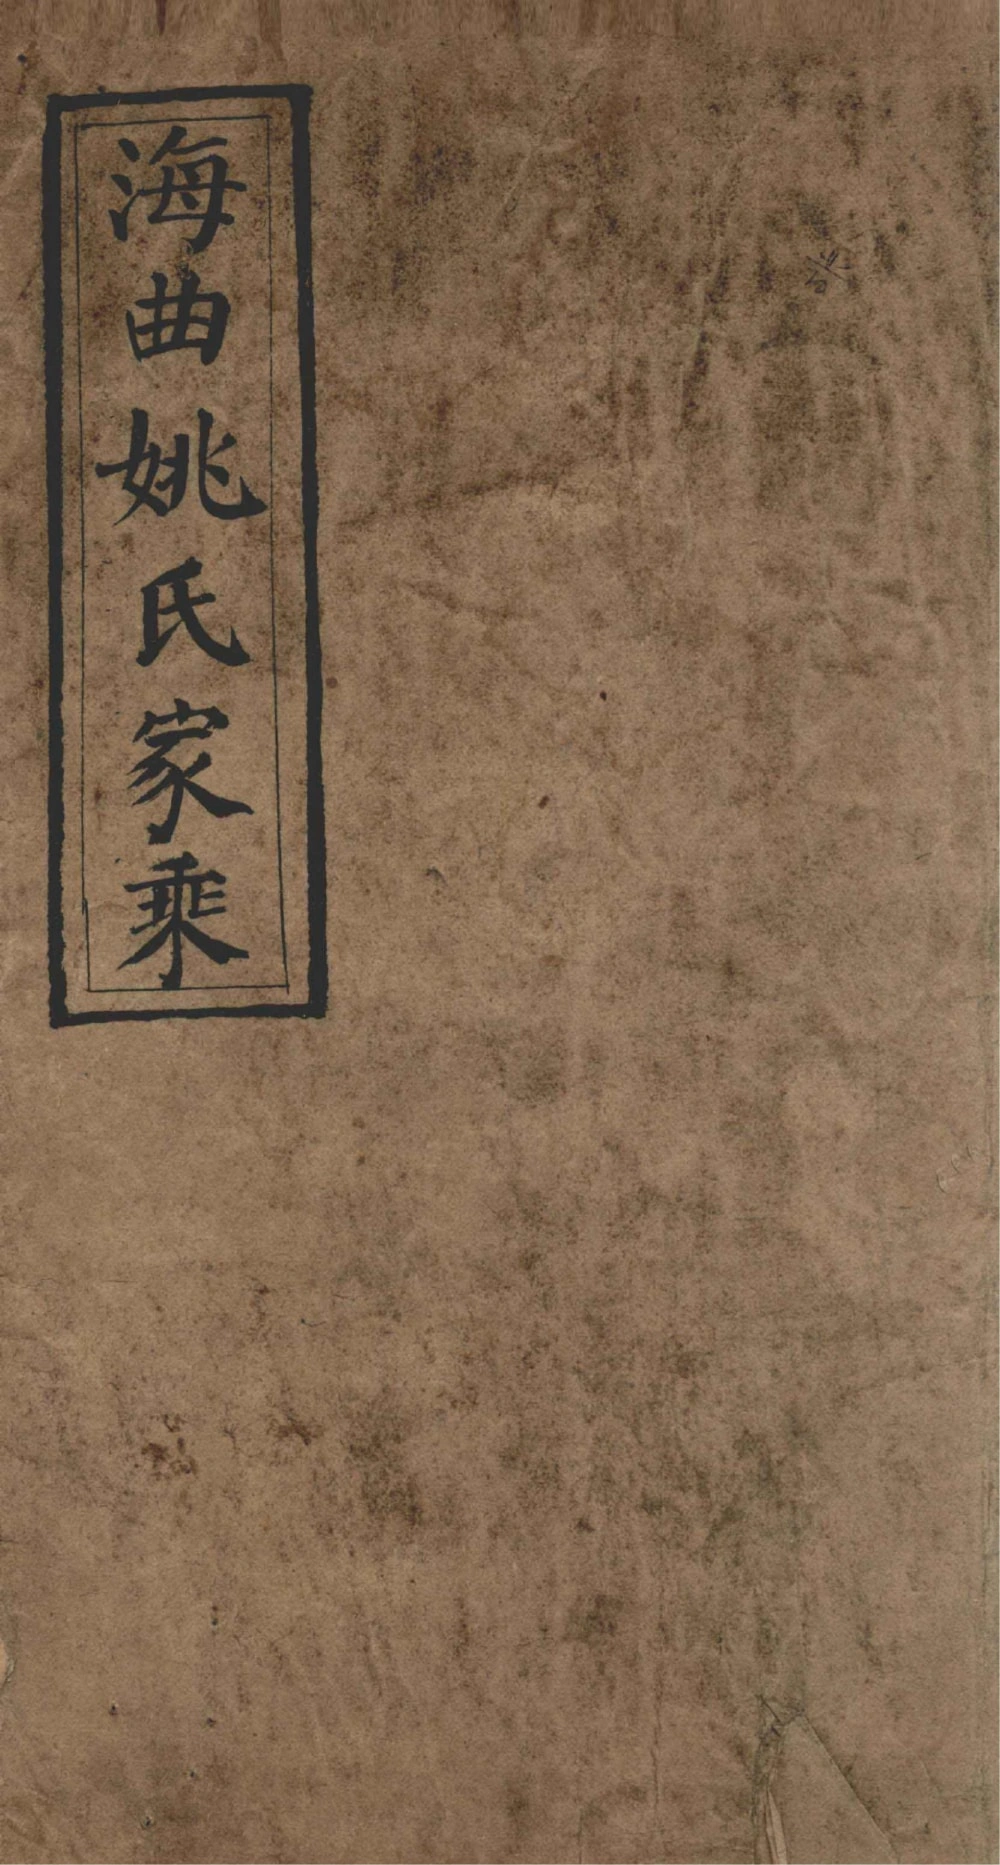 海曲姚氏家乘